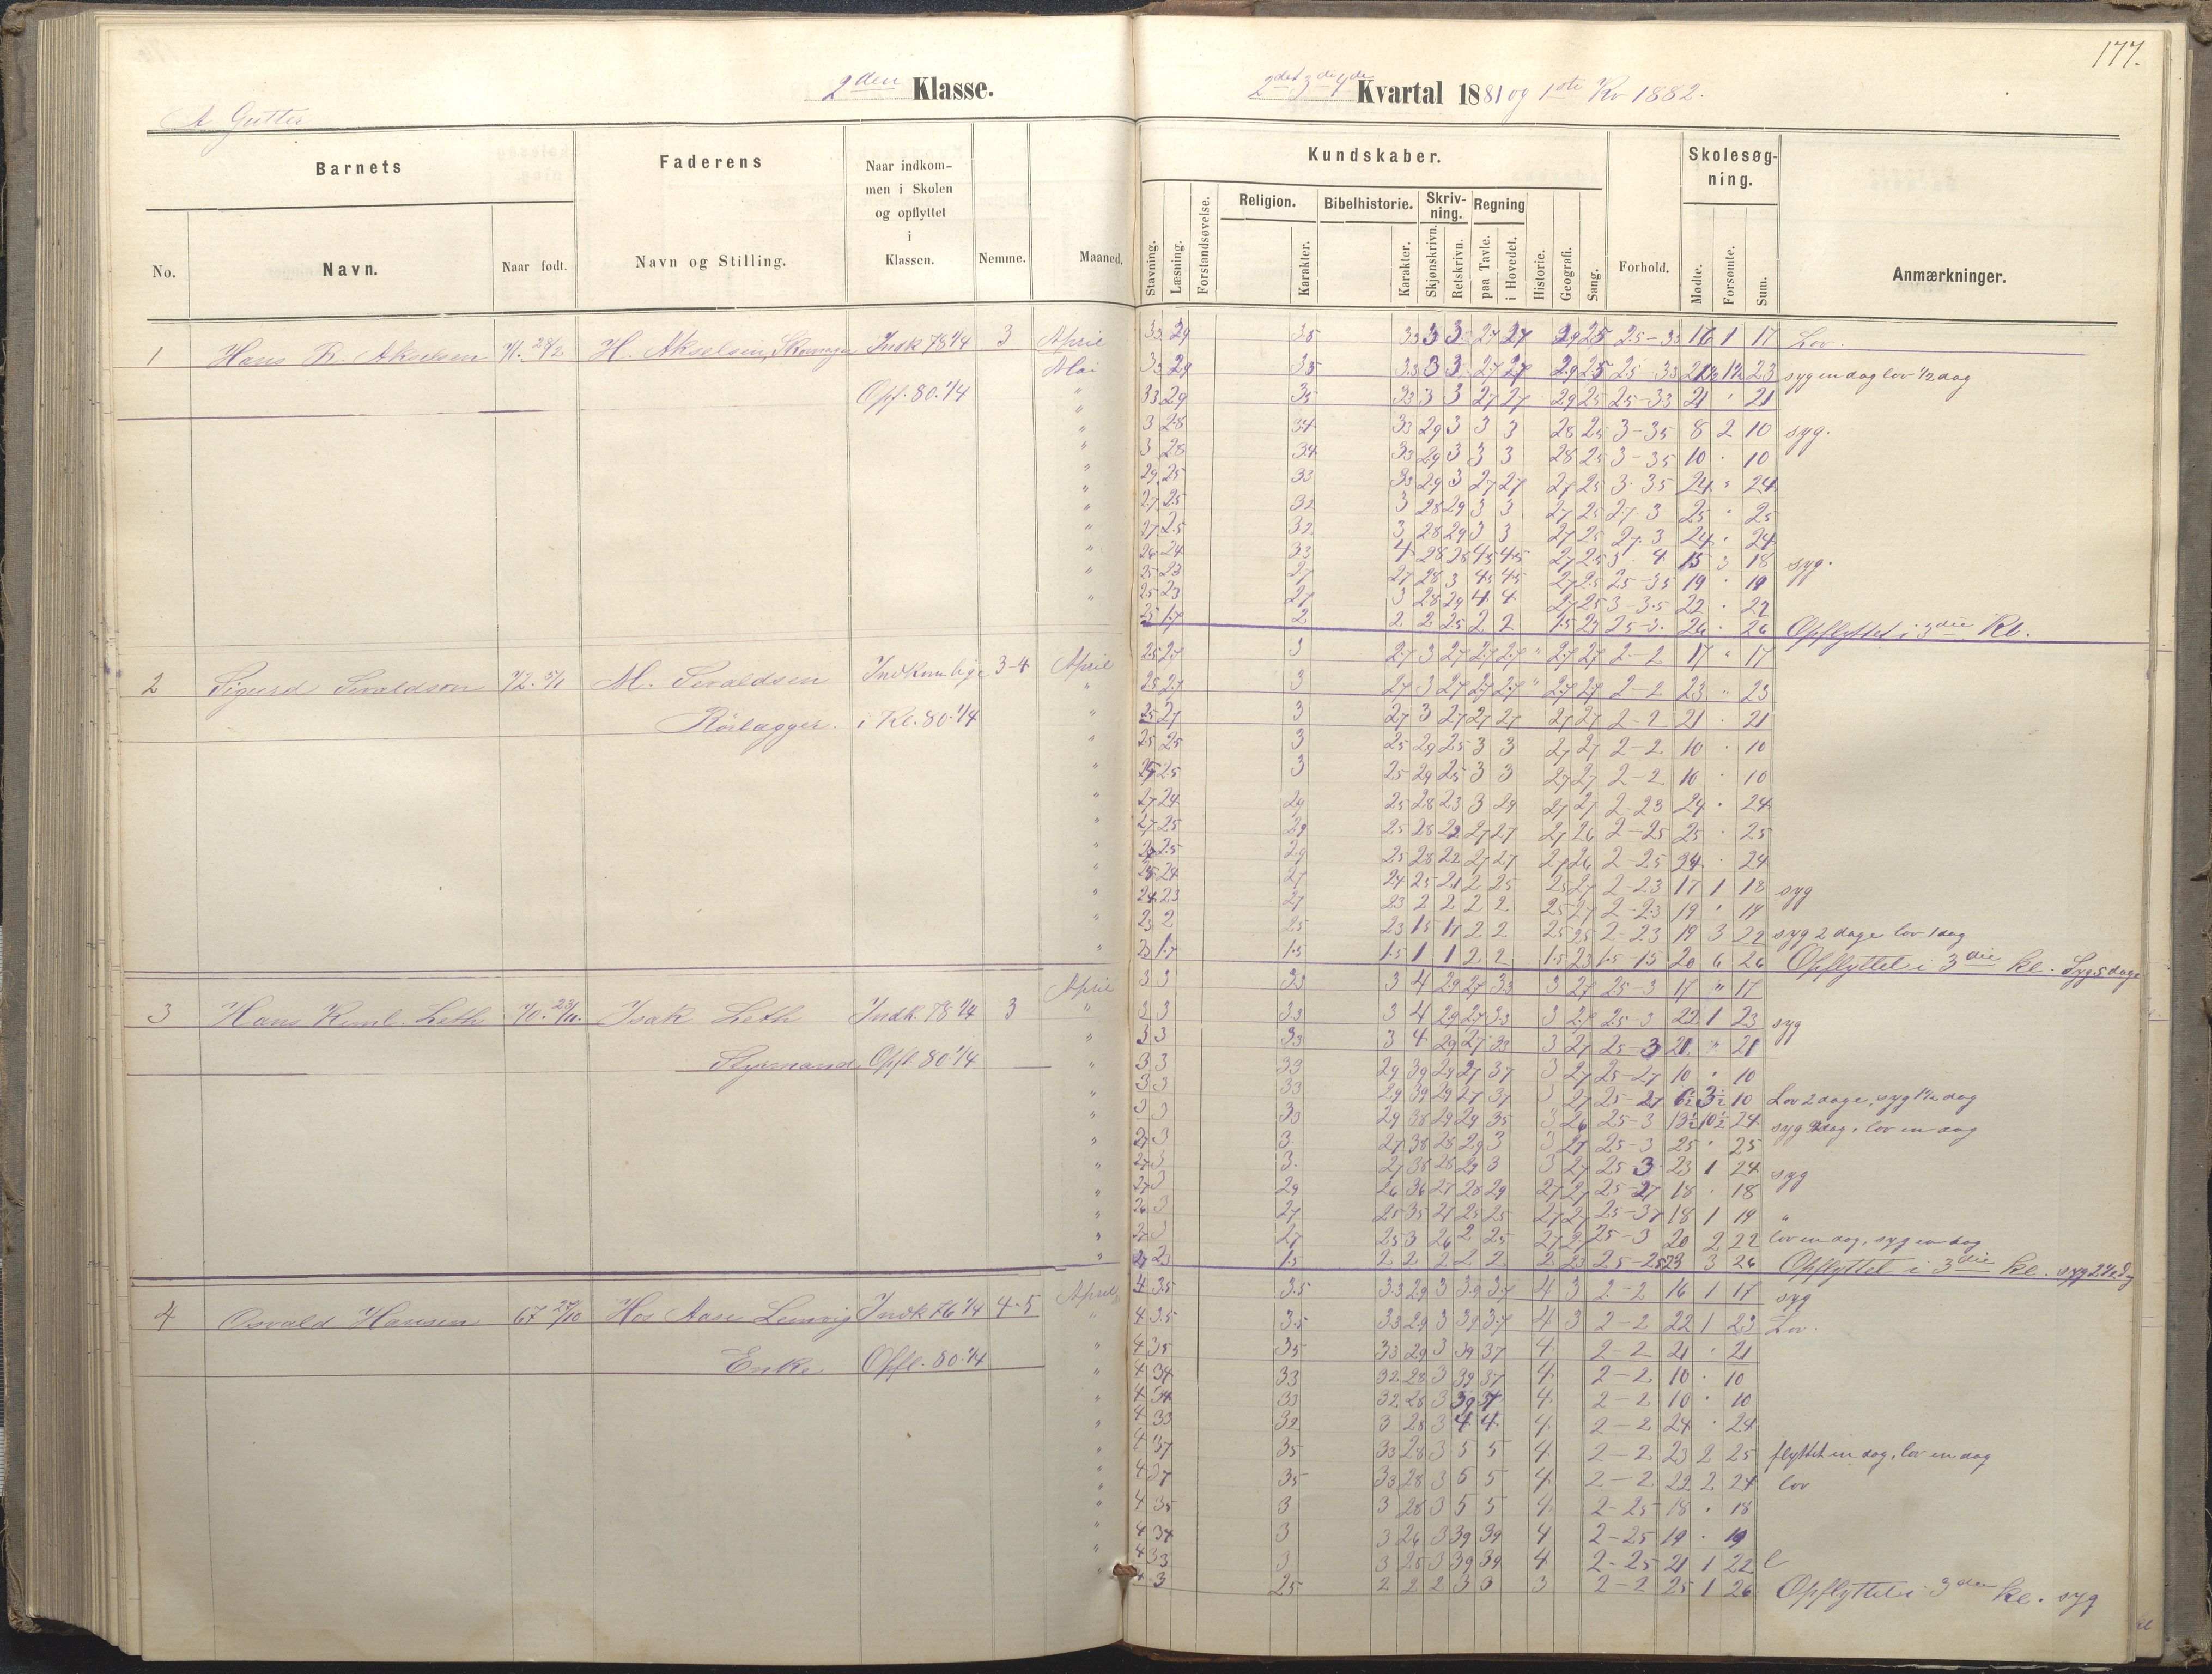 177.
2den Klasse.
2det 3die 4de Kvartal 1881 og 1ste Kv 1882.
A Gutter
Barnets
Faderens
Naar indkom-
men i Skolen
og opflyttet
i
Klassen.
Nemme.
Maaned.
No.
Navn.
Naar født.
Navn og Stilling.
Kundskaber.
Skolesøg-
ning.
Stavning.
Læsning.
Forstandsøvelse.
Religion.
Karakter.
Bibelhistorie.
Karakter.
Skriv-
ning.
Skjønskrivn.
Retskrivn.
Regning
paa Tavle.
i Hovedet.
Historie.
Geografi.
Sang.
Forhold.
Mødte.
Forsømte.
Sum.
Anmærkninger.
1 Hans R. Akselsen 71. 28/2 H. Akselsen, Indk 78 1/4 3 April
Mai
Opf. 80. 1/4
33 29 35 33 3 3 27 27 29 25 25-33 16 1 17 Lov.
33 29 35 33 3 3 27 27 29 25 25-33 21½ 1½ 23 syg en dag lov 1/2 dag
33 29 35 33 3 3 27 27 29 25 25-33 21 " 21
3 28 34 33 29 3 3 3 28 25 3-35 8 2 10 syg.
3 28 34 33 29 3 3 3 28 25 3-35 10 . 10
29 25 33 33 29 3 27 27 27 25 3-35 24 " 24
27 25 32 3 28 29 3 3 27 25 27-3 25 . 25
27 25 32 3 28 29 3 3 27 25 27-3 24 . 24
26 24 33 4 28 28 45 45 27 25 3-4 15 3 18 syg.
25 23 27 27 28 3 45 45 27 25 25-35 19 . 19
25 23 27 3 28 29 4 4 27 25 3-35 22 . 22
25 17 2 2 2 25 2 2 15 27 25-3 26 . 26 Opflyttet i 3die Kl.
2 Sigurd Sivaldson 72. 5/1 M. Sivaldsen 3-4 April
Rørlægger. i Kl. 80. 1/4
25 27 3 27 3 27 27 27 " 27 27 2-2 17 " 17
25 27 3 27 3 27 27 27 " 27 27 2-2 23 " 23
25 27 3 27 3 27 27 27 27 27 2-2 21 . 21
25 25 3 25 29 25 3 3 27 27 2-2 10 . 10
25 25 3 25 29 25 3 3 27 27 2-2 10 . 10
27 24 29 25 28 23 3 29 27 27 2-23 24 . 24
27 25 29 25 28 22 27 27 27 26 2-25 25 . 25
26 25 29 25 28 22 27 27 27 26 2-25 24 . 24
25 24 27 24 25 21 2 25 25 27 2-23 17 1 18 syg
24 23 27 23 2 2 2 2 25 27 2-23 19 . 19
23 2 25 23 15 11 2 2 25 25 2-23 19 3 22 syg 2 dage lov 1 dag
23 17 15 15 1 1 2 2 15 23 15-15 20 6 26 Opflyttet i 3die kl. Syg 5 dage
3 Hans Leth 70. 23/11 Isak Leth Indk. 78 1/4 3 April
Styrmand Opfl. 80 1/4
3 3 33 3 4 29 27 33 3 27 25-3 17 " 17
3 3 33 3 4 29 27 33 3 27 25-3 22 1 23 syg
3 3 33 3 4 29 27 33 3 27 25-3 21 " 21
3 3 33 29 39 29 27 37 3 27 25-27 10 . 10
3 3 33 29 39 29 27 37 3 27 25-27 6½ 3½ 10 Lov 2 dage, syg 1½ dag
3 3 33 29 38 29 29 35 3 26 25-3 13½ 10½ 24 syg dag, lov en dag
27 3 3 27 38 28 29 3 3 27 25-3 25 . 25
27 3 3 27 38 28 29 3 3 27 25-3 23 1 24 syg
27 3 29 26 36 27 28 29 27 27 25-27 18 . 18
26 3 27 25 35 27 25 25 27 27 25-37 18 1 19 "
27 3 27 25 3 26 2 25 27 27 25-3 20 2 22 lov en dag, syg en dag
27 23 15 2 2 2 2 2 2 23 25-25 23 3 26 Opflyttet i 3die kl. syg 2½ dg
4 Osvald Hansen 67 27/10 Hos Aase Indk 76 1/4 4-5 April
Enke Opfl. 80. 1/4
4 35 35 33 29 3 39 37 4 3 2-2 16 1 17 syg
4 35 35 33 29 3 39 37 4 3 2-2 22 1 23 Lov.
4 35 35 33 29 3 39 37 4 2-2 21 . 21
4 34 33 32 28 3 39 37 4 2-2 10 . 10
4 34 33 32 28 3 39 37 4 2-2 10 . 10
4 33 32 3 28 3 4 4 4 2-2 24 . 24
4 37 35 33 28 3 5 5 4 2-2 23 2 25 flyttet en dag, lov en dag
4 37 35 33 28 3 5 5 4 2-2 22 2 24 lov
4 35 3 3 28 3 5 5 4 2-25 18 . 18
4 34 3 3 26 3 39 39 4 2-25 19 . 19
4 33 3 3 25 3 39 39 4 2-25 21 1 22 l
4 3 25 2 2 2 3 3 3 2-2 25 1 26 Opflyttet i 3die kl. syg